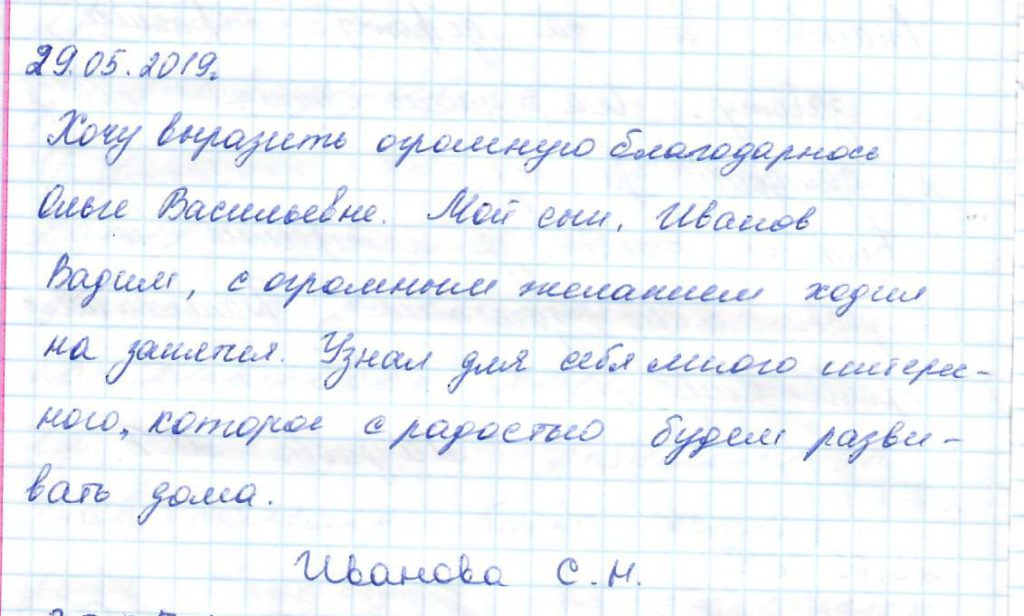 29.05.2019г.
Хочу выразить огромную благодарнось
Ольге Васильевне. Мой сын, Иванов
Вадим, с огромным желанием ходил
на занятия. Узнал для себя много интерес-
ного, которое с радостью будем разви-
вать дома.
Иванова С.Н.